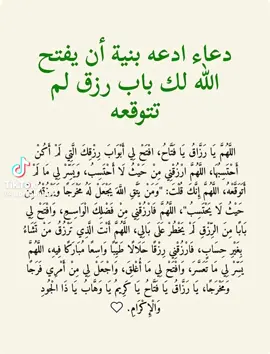 دعاء ادعه بنية أن يفتح
الله لك باب رزق لم
تتوقعه
اللَّهُمَّ يَا رَزَّاقُ يَا فَتَّاحُ، افْتَحْ لِي أَبْوَابَ رِزْقِكَ الَّتِي لَمْ أَكُنْ
أَحْتَسِبُهَا، اللَّهُمَّ ارْزُقْنِي مِنْ حَيْثُ لَا أَحْتَسِبُ، وَيَسِّرْ لِي مَا لَمْ
أَتَوَقَّعْهُ، اللَّهُمَّ إِنَّكَ قُلْتَ: "وَمَنْ يَتَّقِ اللَّهَ يَجْعَلْ لَهُ مَخْرَجًا وَيَرْزُقْهُ مِنْ
حَيْثُ لَا يَحْتَسِبُ"، اللَّهُمَّ فَارْزُقْنِي مِنْ فَضْلِكَ الْوَاسِعِ، وَافْتَحْ لِي
بَابًا مِنَ الرِّزْقِ لَمْ يَخْطُرْ عَلَى بَالِي، اللَّهُمَّ أَنْتَ الَّذِي تَرْزُقُ مَنْ تَشَاءُ
بِغَيْرِ حِسَابٍ، فَارْزُقْنِي رِزْقًا حَلَالًا طَيِّبًا وَاسِعًا مُبَارَكًا فِيهِ، اللَّهُمَّ
يَسِّرْ لِي مَا تَعَسَّرَ، وَافْتَحْ لِي مَا أُغْلِقَ، وَاجْعَلْ لِي مِنْ أَمْرِي فَرَجًا
وَمَخْرَجًا، يَا رَزَّاقُ يَا فَتَّاحُ يَا كَرِيمُ يَا وَهَّابُ يَا ذَا الْجُودِ
وَالْإِكْرَامِ. ♡